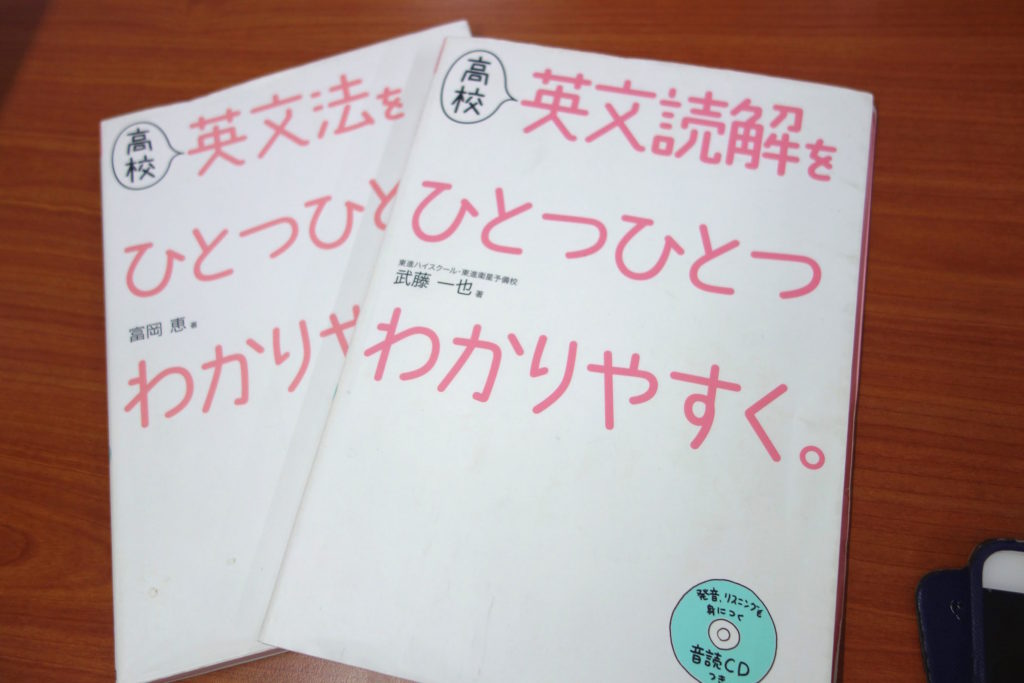 高校
英文法を
ひとつひと
富岡 恵 著
わかりや
高校
英文読解を
ひとつひとつ
東進ハイスクール・東進衛星予備校
武藤 一也 著
わかりやすく。
発音、リスニングも
身につく
音読CD
つき